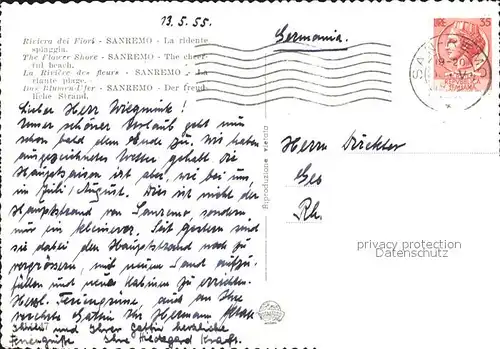 13.5.55.
Germania.
Riviera dei Fiori - SANREMO - La ridente
spiaggia.
The Flower Shore - SANREMO - The cheer-
ful beach.
La Rivière des fleurs - SANREMO - La
riante plage.
Das Blumen-Ufer - SANREMO - Der freud-
liche Strand.
LIRE 35
Lieber Herr
Unser schöner Urlaub geht nun
schon bald dem Ende zu. Wir haben
ausgezeichnetes Wetter gehabt. Die
Hauptsaison ist aber, wie bei uns,
im Juli/August. Dies ist nicht der
Hauptstrand von Sanremo, sondern
nur ein kleinerer. Seit gestern sind
sie dabei den Hauptstrand noch zu
vergrössern, mit neuem Sand aufzu-
füllen und neue Kabinen zu errichten.
Herzl. Feriengrüsse, auch an Ihre
Gattin Ihr Hermann
und Ihrer Gattin herzliche
Feriengrüße Ihre Hildegard
Herrn
Rh.
Riproduzione vietata
privacy protection
Datenschutz